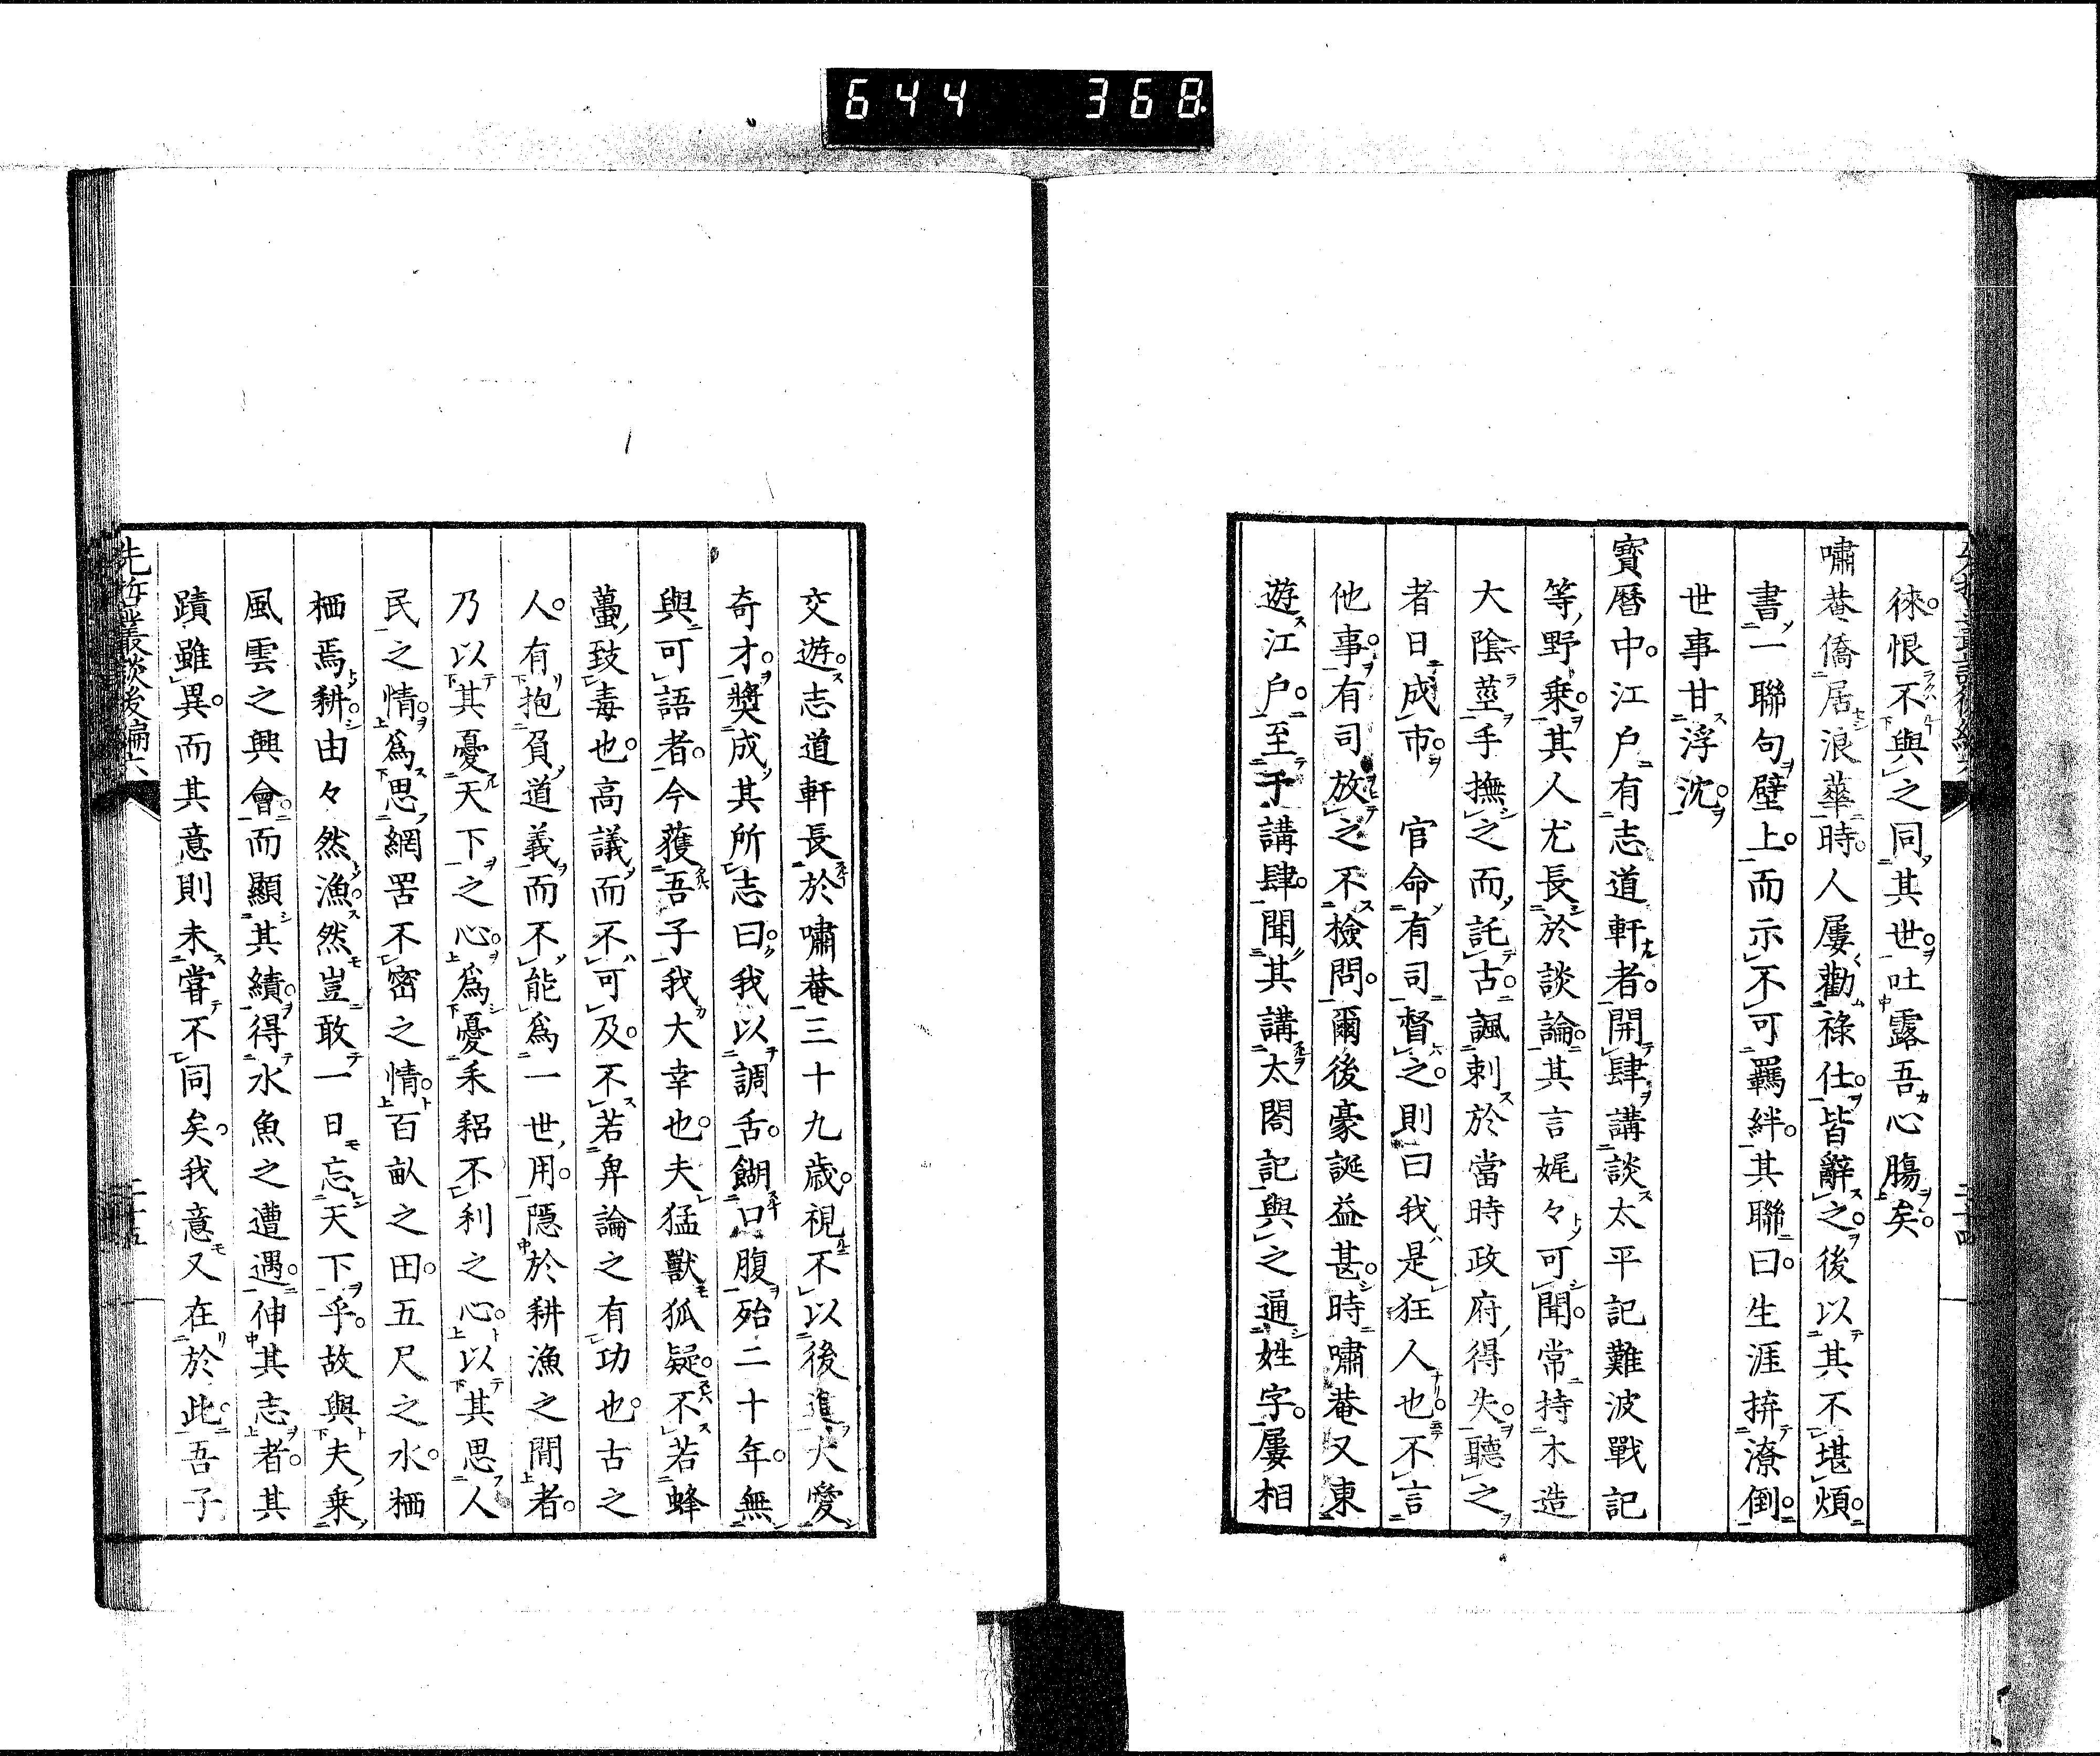 644 368
徠。恨不與之同其世。吐露吾心膓矣。
嘯菴僑居浪華時。人屢勸祿仕。皆辭之。後以其不堪煩。
書一聯句壁上。而示不可羈絆。其聯曰。生涯拚潦倒。
世事甘浮沈。
寳曆中。江戶有志道軒者。開肆講談太平記難波戰記
等。野乗。其人尤長於談論。其言娓々可聞。常持木造
大陰莖。手撫之而託古。諷刺於當時政府得失。聽之
者日成市。官命有司督之。則曰我是狂人也。不言
他事。有司放之不檢問。爾後豪誕益甚。時嘯菴又東
遊江戶。至于講肆。聞其講太閤記。與之通姓字。屢相
二十四
交遊。志道軒長於嘯菴三十九歲。視不以後進。大愛
奇才。奬成其所志曰。我以調舌。餬口腹殆二十年。無
與可語者。今獲吾子。我大幸也。夫猛獸狐疑。不若蜂
蠆致毒也。高議而不可及。不若卑論之有功也。古之
人。有抱負道義而不能爲一世用。隱於耕漁之間者。
乃以其憂天下之心。爲憂耒耜不利之心。以其思人
民之情。爲思網罟不密之情。百畝之田。五尺之水。栖
栖焉耕。由々然漁。然豈敢一日忘天下乎。故與夫乗
風雲之興會。而顯其績。得水魚之遭遇。伸其志者。其
蹟雖異。而其意則未嘗不同矣。我意又在於此。吾子
先哲叢談後編六
二十五